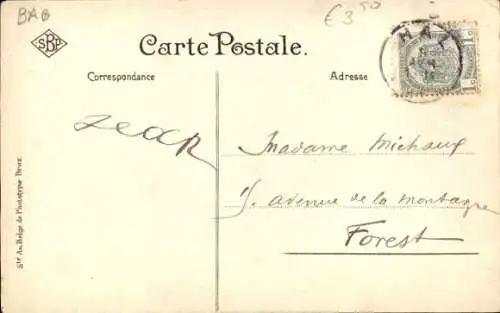 BAB
€ 3 50
SBP
Carte Postale.
Correspondance
Adresse
Madame Michaux
9, avenue de la montagne
Forest
Sté An. Belge de Phototypie Brux.
1c 1c